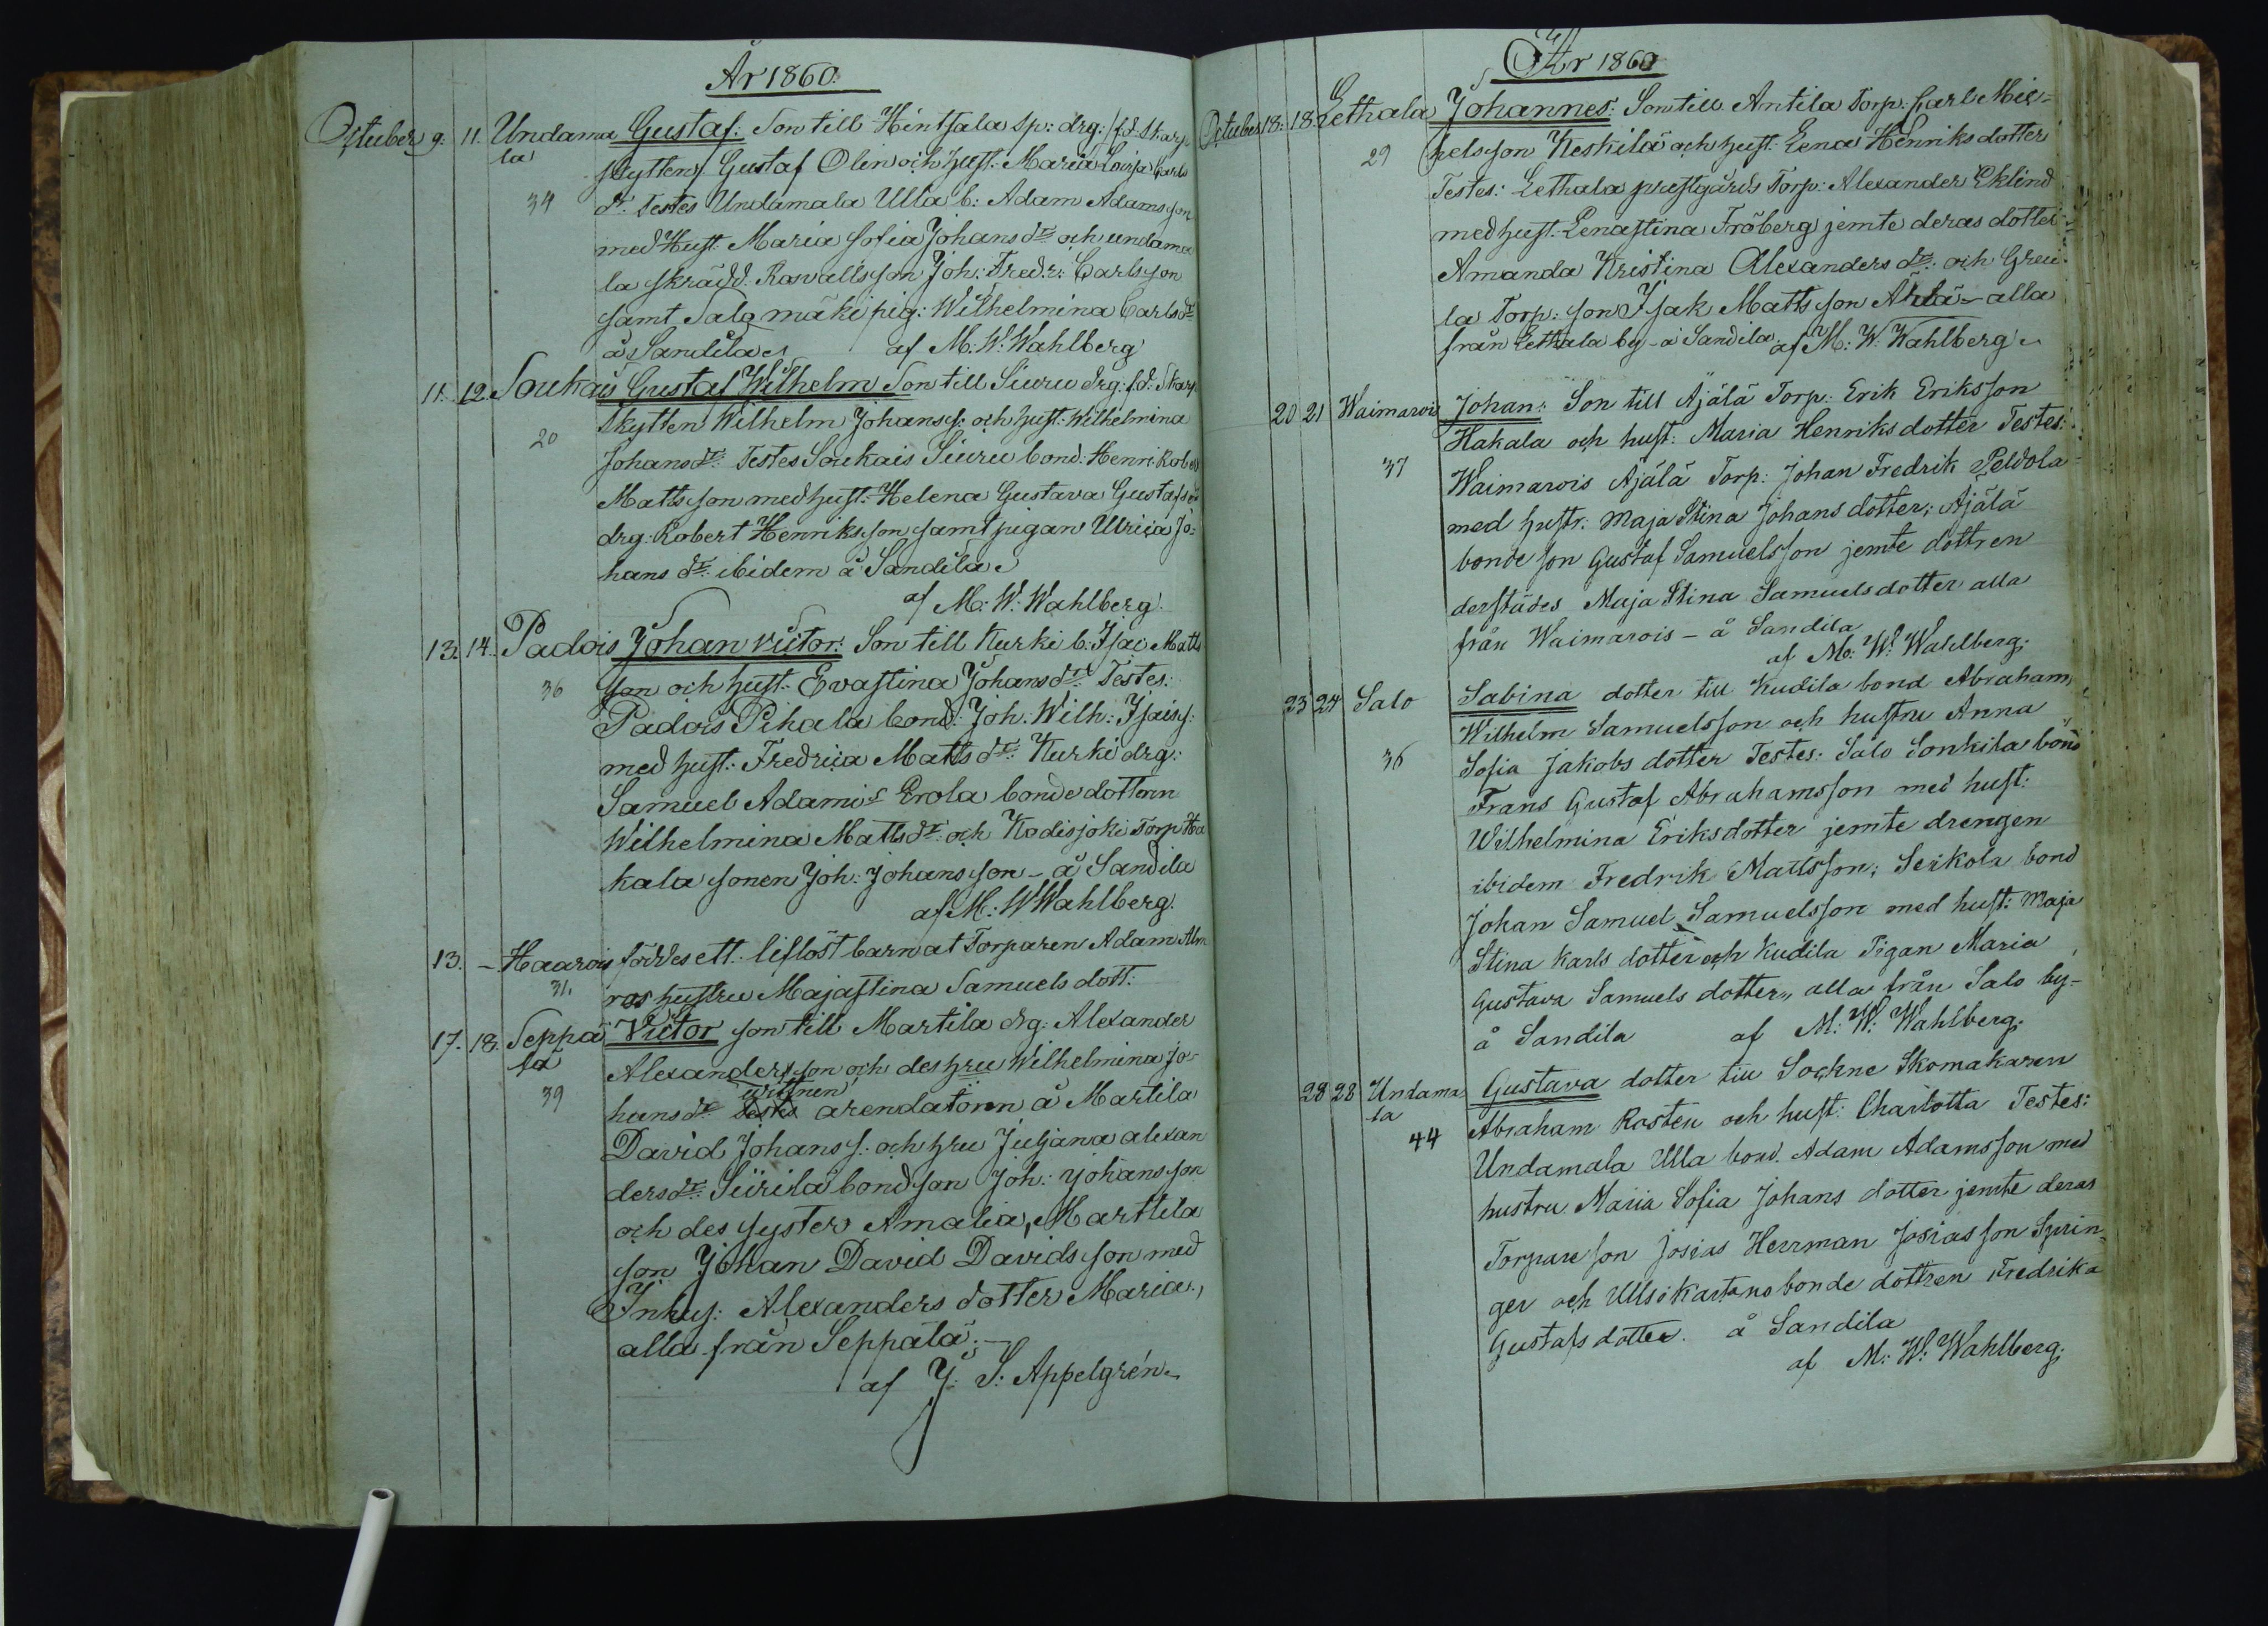 År 1860.
October 9. 11. Undama Gustaf: Son till Hintsala Sp: drg: /f.d. Skarp
la skytten/ Gustaf Olin och hust: Maria Lovisa Carls
34 dr. Testes Undamala Ulla b: Adam Adamsson
med Hust Maria Sofia Johans dr och undama
la skrädd. Rasvallsson Joh: Fredr: Carlsson
samt Salomäki pig: Wilhelmina Carls dr
å Sandila af M: W: Wahlberg
11. 12. Soukais Gustaf Wilhelm Son till Siuru drg: f.d. Skarp
skytten Wilhelm Johans s: och hust: Wilhelmina
20 Johans dr: Testes Soukais Siuru bond: Henr: Robert
Mattsson med hust: Helena Gustava Gustafs dr
drg: Robert Henriksson samt pigan Ulrica Jo-
hans dr: ibidem å Sandila
af M: W: Wahlberg.
13. 14. Padois Johan Victor: Son till Kurki b: Isac Matts
36 son och hust: Evastina Johans dr: Testes:
Padois Pihala bond: Joh: Wilh: Isacs s:
med hust: Fredrica Matts dr: Kurki drg:
Samuel Adami s Erola bonde dottern
Wilhelmina Matts dr: och Kodisjoki Torp Ha
kala sonen Joh: Johansson - å Sandila
af M: W Wahlberg.
13. - Haarois föddes ett liflöst barn at Torparen Adam Alm
31. ros hustru Majastina Samuels dott:
17. 18. Seppä Victor son till Martila drg: Alexander
lä Alexandersson och des hru Wilhelmina Jo-
wittnen
39 hans dr Testes arendatorn å Martila
David Johans s: och hru Juljana alexan
ders dr: Siirilä bondson Joh: Johansson
och des syster Amalia, Marttila
son Johan David Davidsson med
Inhy: Alexanders dotter Maria,
alla från Seppälä.
af J: S: Appelgrén
År 1860
October 18. 18. Lethala Johannes: Son till Antila Torp: Carl Mic-
29 helsson Keskilä och hust: Lena Henriks dotter
Testes: Lethala prestgårds Torp: Alexander Eklind
med hust: Lenastina Fröberg jemte deras dotter
Amanda Kristina Alexanders dr: och Greu-
la Torp: son Isak Mattsson Ahla - alla
från Lethala by - å Sandila af M: W. Wahlberg
20 21 Waimarois Johan: Son till Äjälä Torp: Erik Eriksson
Hakala och hust: Maria Henriks dotter Testes:
37 Waimarois Ajälä Torp: Johan Fredrik Peldola
med hustr: Maja Stina Johans dotter; Ajälä
bonde son Gustaf Samuelsson jemte dottren
derstädes Maja Stina Samuels dotter alla
från Waimarois - å Sandila
af M: W: Wahlberg;
23 24 Salo Sabina dotter till Kudila bond Abraham
Wilhelm Samuelsson och hustru Anna
36 Sofia Jakobs dotter Testes: Salo Sonkila bond
Frans Gustaf Abrahamsson med hust:
Wilhelmina Eriksdotter jemte drengen
ibidem Fredrik Mattsson; Seikola bond
Johan Samuel Samuelsson med hust: Maja
Stina Karls dotter och Kudila Pigan Maria
Gustava Samuels dotter,, alla från Salo by-
å Sandila af M: W: Wahlberg;
28 28 Undama Gustava dotter till Sockne Skomakaren
la Abraham Rosten och hust: Charlotta Testes:
44 Undamala Ulla bond. Adam Adamsson med
hustru Maria Sofia Johans dotter jemte deras
Torpare son Josias Herrman Josiasson Sprin-
ger och Ullsikartano bonde dottren Fredrika
Gustafs dotter. å Sandila
af M: W: Wahlberg;